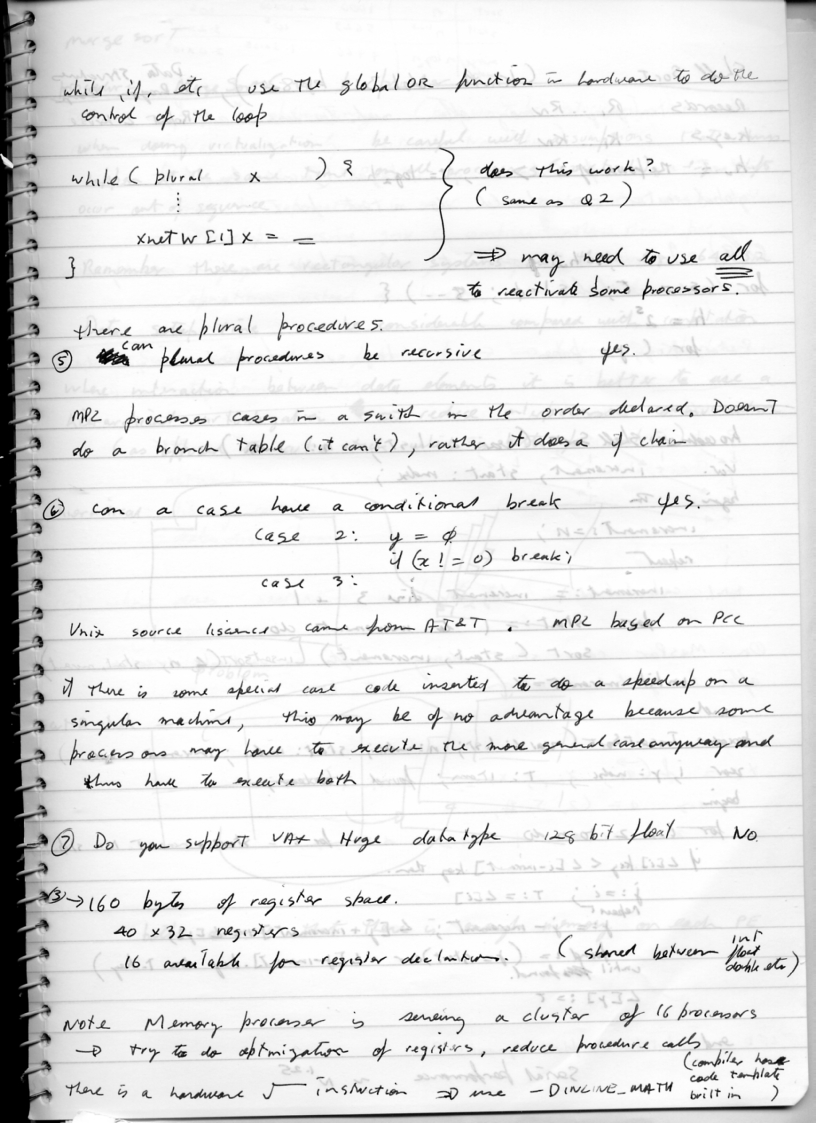 while, if, etc use the global OR function in hardware to do the
control of the loop
while ( plural x ) {
⋮
xnetW[1]x = =
}
does this work?
( same as Q2 )
⇒ may need to use all
to reactivate some processors.
there are plural procedures.
⑤ can plural procedures be recursive yes.
MPL processes cases in a swith in the order declared. Doesn't
do a branch table (it can't), rather it does a if chain
⑥ can a case have a conditional break yes.
case 2: y = φ
if (x != 0) break;
case 3:
Unix source liscence came from AT&T. MPL based on PCC
if there is some special case code inserted to do a speed up on a
singular machine, this may be of no advantage because some
processors may have to execute the more general case anyway and
thus have to execute both
⑦ Do you support VAX Huge datatype 128 bit float No.
→ 160 bytes of register space.
40 x 32 registers
16 available for register declarations. ( shared between int
float
double etc )
Note Memory processer is serving a cluster of 16 processors
→ try to do optimization of registers, reduce procedure calls
There is a hardware √ instruction ⇒ use -DINLINE_MATH
(compiler has
code template
built in )